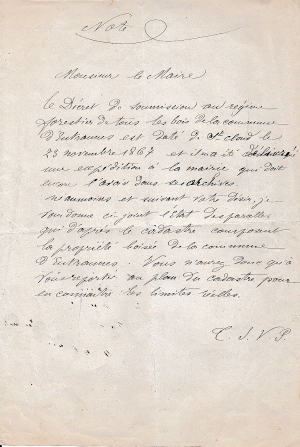 Note
Monsieur le Maire
le Décret de soumission au régime
forestier de tous les bois de la commune
d'Entraunes est daté de St Cloud le
23 novembre 1867 et il m'a été délivré
une expédition à la mairie qui doit
encore l'avoir dans ses archives.
néanmoins et suivant votre désir, je
vous donne ci joint l'Etat des parcelles
qui d'après le cadastre composent
la propriété boisée de la commune
d'Entraunes. Vous n'aurez donc qu'à
vous reporter au plan du cadastre pour
en connaître les limites réelles.
T. S. V. P.